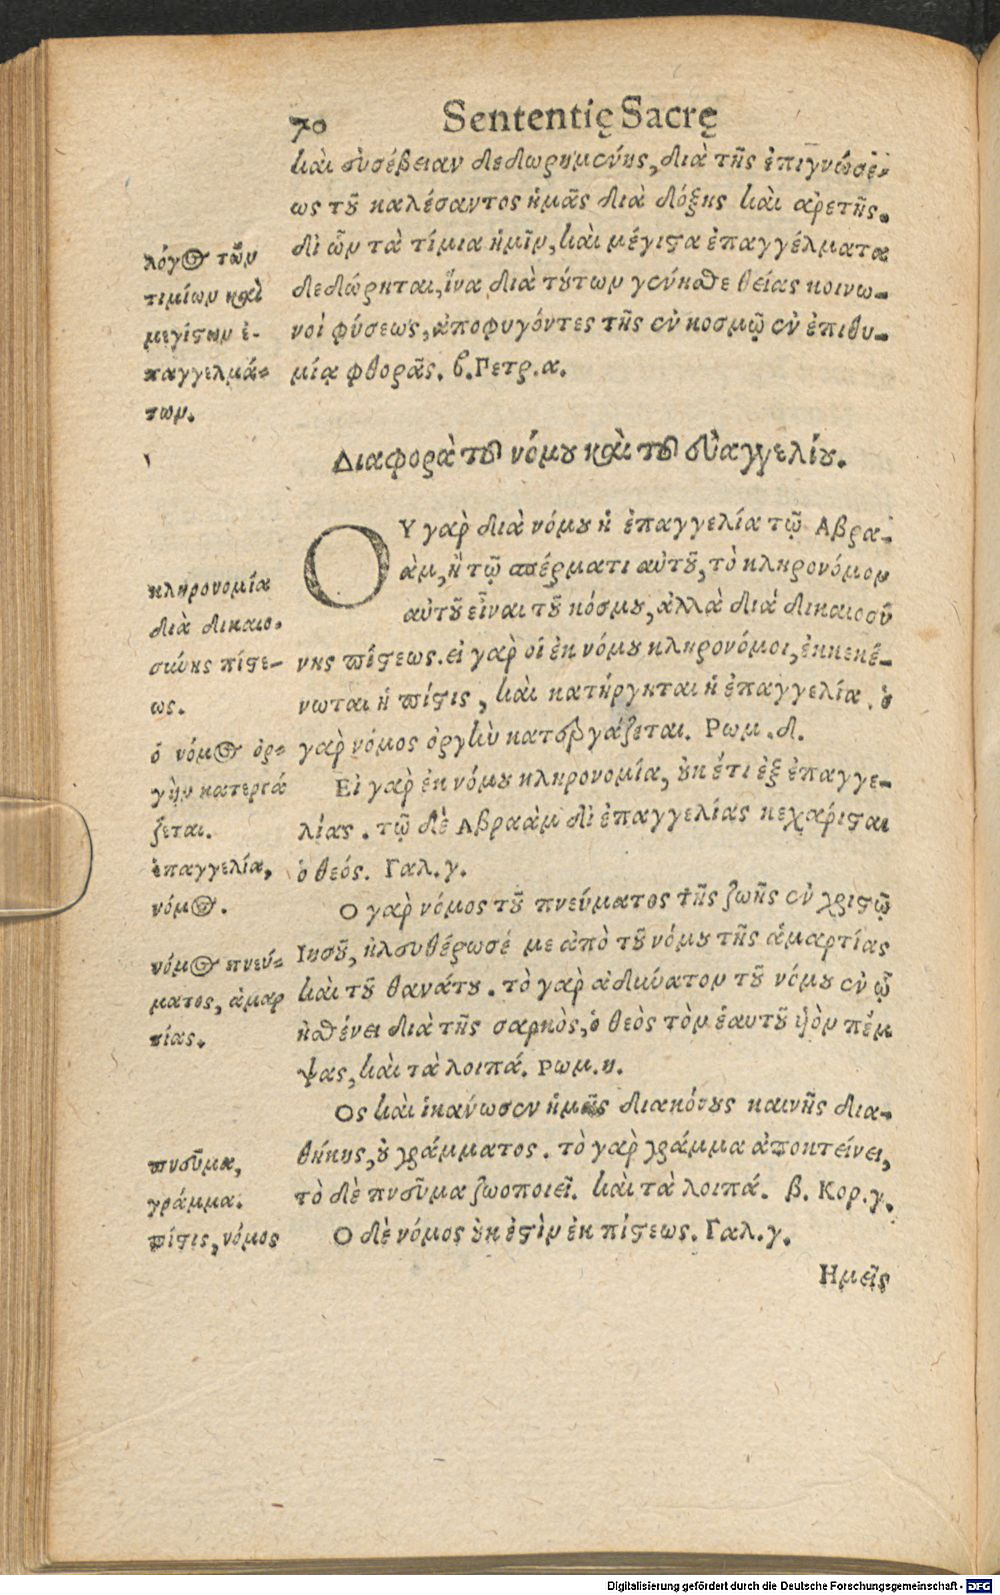 70 Sententię Sacrę
καὶ εὐσέβειαν δεδωρημένης, διὰ τῆς ἐπιγνώσε-
ως τοῦ καλέσαντος ἡμᾶς διὰ δόξης καὶ ἀρετῆς.
δι ὧν τὰ τίμια ἡμῖν, καὶ μέγιστα ἐπαγγέλματα
δεδώρηται, ἵνα διὰ τούτων γένησθε θείας κοινω-
νοὶ φύσεως, ἀποφυγόντες τῆς ἐν κοσμῷ ἐν ἐπιθυ-
μίᾳ φθορᾶς. β. Πετρ. α.
λόγος τῶν
τιμίων καὶ
μεγίστων ἐ-
παγγελμά-
των.
Διαφορὰ τοῦ νόμου καὶ τοῦ εὐαγγελίου.
ΟΥ γὰρ διὰ νόμου ἡ ἐπαγγελία τῷ Αβρα-
ὰμ, ἢ τῷ σπέρματι αὐτοῦ, τὸ κληρονόμον
αὐτοῦ εἶναι τοῦ κόσμου, ἀλλὰ διὰ δικαιοσύ
νης πίστεως. εἰ γὰρ οἱ ἐκ νόμου κληρονόμοι, ἐκκεκέ-
νωται ἡ πίστις, καὶ κατήργηται ἡ ἐπαγγελία. ὁ
γὰρ νόμος ὀργὴν κατεργάζεται. Ρωμ. δ.
Εἰ γὰρ ἐκ νόμου κληρονομία, οὐκ ἔτι ἐξ ἐπαγγε-
λίας. τῷ δὲ Αβραὰμ δι ἐπαγγελίας κεχάρισται
ὁ θεός. Γαλ. γ.
κληρονομία
διὰ δικαιο-
σύνης πίστε-
ως.
ὁ νόμος ὀρ-
γὴν κατεργά
ζεται.
ἐπαγγελία,
νόμος.
Ο γὰρ νόμος τοῦ πνεύματος τῆς ζωῆς ἐν χριστῷ
Ιησοῦ, ἠλευθέρωσέ με ἀπὸ τοῦ νόμου τῆς ἁμαρτίας
καὶ τοῦ θανάτου. τὸ γὰρ ἀδύνατον τοῦ νόμου ἐν ᾧ
ἠσθένει διὰ τῆς σαρκὸς, ὁ θεὸς τὸν ἑαυτοῦ υἱὸν πέμ
ψας, καὶ τὰ λοιπά. Ρωμ. η.
νόμος πνεύ-
ματος, ἁμαρ
τίας.
Ος καὶ ἱκανωσεν ἡμᾶς διακόνους καινῆς δια-
θήκης, οὐ γράμματος. τὸ γὰρ γράμμα ἀποκτείνει,
τὸ δὲ πνεῦμα ζωοποιεῖ. καὶ τὰ λοιπά. β. Κορ. γ.
Ο δὲ νόμος οὐκ ἐστὶν ἐκ πίστεως. Γαλ. γ.
πνεῦμα,
γράμμα.
πίστις, νόμος
Ημεῖς
Digitalisierung gefördert durch die Deutsche Forschungsgemeinschaft - DFG